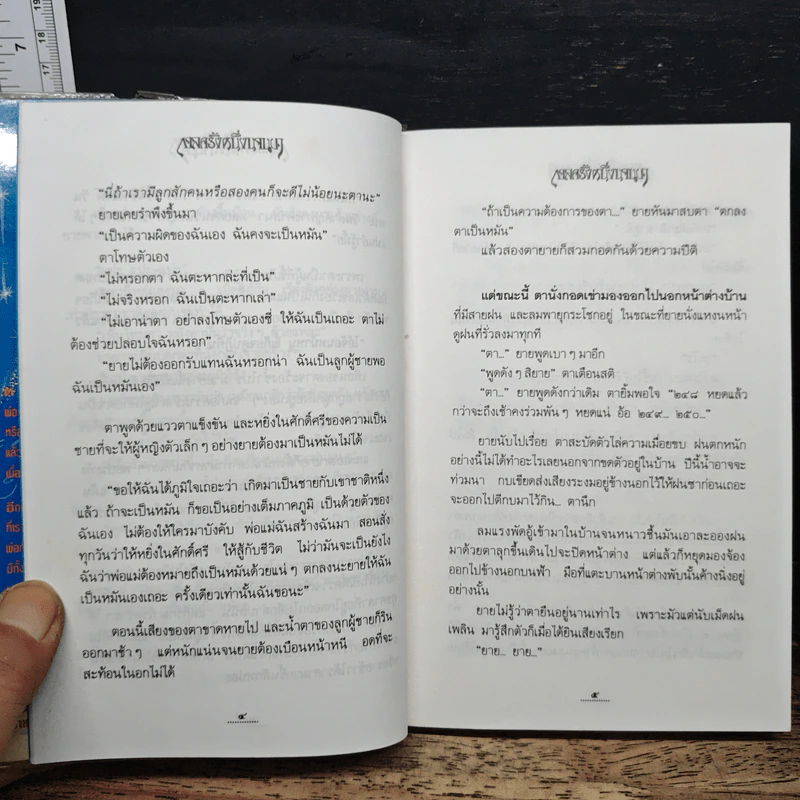 "นี่ถ้าเรามีลูกสักคนหรือสองคนก็จะดีไม่น้อยนะตานะ"
ยายเคยรำพึงขึ้นมา
"เป็นความผิดของฉันเอง ฉันคงจะเป็นหมัน"
ตาโทษตัวเอง
"ไม่หรอกตา ฉันตะหากล่ะที่เป็น"
"ไม่จริงหรอก ฉันเป็นตะหากเล่า"
"ไม่เอาน่าตา อย่าลงโทษตัวเองซี่ ให้ฉันเป็นเถอะ ตาไม่
ต้องช่วยปลอบใจฉันหรอก"
"ยายไม่ต้องออกรับแทนฉันหรอกน่า ฉันเป็นลูกผู้ชายพอ
ฉันเป็นหมันเอง"
ตาพูดด้วยแววตาแข็งขัน และหยิ่งในศักดิ์ศรีของความเป็น
ชายที่จะให้ผู้หญิงตัวเล็กๆ อย่างยายต้องมาเป็นหมันไม่ได้
"ขอให้ฉันได้ภูมิใจเถอะว่า เกิดมาเป็นชายกับเขาชาติหนึ่ง
แล้ว ถ้าจะเป็นหมัน ก็ขอเป็นอย่างเต็มภาคภูมิ เป็นด้วยตัวของ
ฉันเอง ไม่ต้องให้ใครมาบังคับ พ่อแม่ฉันสร้างฉันมา สอนสั่ง
ทุกวันว่าให้หยิ่งในศักดิ์ศรี ให้สู้กับชีวิต ไม่ว่ามันจะเป็นยังไง
ฉันว่าพ่อแม่ต้องหมายถึงเป็นหมันด้วยแน่ๆ ตกลงนะยายให้ฉัน
เป็นหมันเองเถอะ ครั้งเดียวเท่านั้นฉันขอนะ"
ตอนนี้เสียงของตาขาดหายไป และน้ำตาของลูกผู้ชายก็ริน
ออกมาช้าๆ แต่หนักแน่นจนยายต้องเบือนหน้าหนี อดที่จะ
สะท้อนในอกไม่ได้
๔
"ถ้าเป็นความต้องการของตา..." ยายหันมาสบตา "ตกลง
ตาเป็นหมัน"
แล้วสองตายายก็สวมกอดกันด้วยความปีติ
แต่ขณะนี้ ตานั่งกอดเข่ามองออกไปนอกหน้าต่างบ้าน
ที่มีสายฝน และลมพายุกระโชกอยู่ ในขณะที่ยายนั่งแหงนหน้า
ดูฝนที่รั่วลงมาทุกที
"ตา..." ยายพูดเบาๆ มาอีก
"พูดดังๆ สิยาย" ตาเตือนสติ
"ตา..." ยายพูดดังกว่าเดิม ตายิ้มพอใจ "๒๔๘ หยดแล้ว
กว่าจะถึงเช้าคงร่วมพันๆ หยดแน่ อ้อ ๒๔๙... ๒๕๐..."
ยายนับไปเรื่อย ตาสะบัดตัวไล่ความเมื่อยขบ ฝนตกหนัก
อย่างนี้ไม่ได้ทำอะไรเลยนอกจากขดตัวอยู่ในบ้าน ปีนี้น้ำอาจจะ
ท่วมนา กบเขียดส่งเสียงระงมอยู่ข้างนอกไว้ให้ฝนซาก่อนเถอะ
จะออกไปตีกบมาไว้กิน... ตานึก
ลมแรงพัดอู้เข้ามาในบ้านจนหนาวชื้นมันเอาละอองฝน
มาด้วยตาลุกขึ้นเดินไปจะปิดหน้าต่าง แต่แล้วก็หยุดมองจ้อง
ออกไปข้างนอกบนฟ้า มือที่แตะบานหน้าต่างพับนั้นค้างนิ่งอยู่
อย่างนั้น
ยายไม่รู้ว่าตายืนอยู่นานเท่าไร เพราะมัวแต่นับเม็ดฝน
เพลิน มารู้สึกตัวก็เมื่อได้ยินเสียงเรียก
"ยาย... ยาย..."
๕